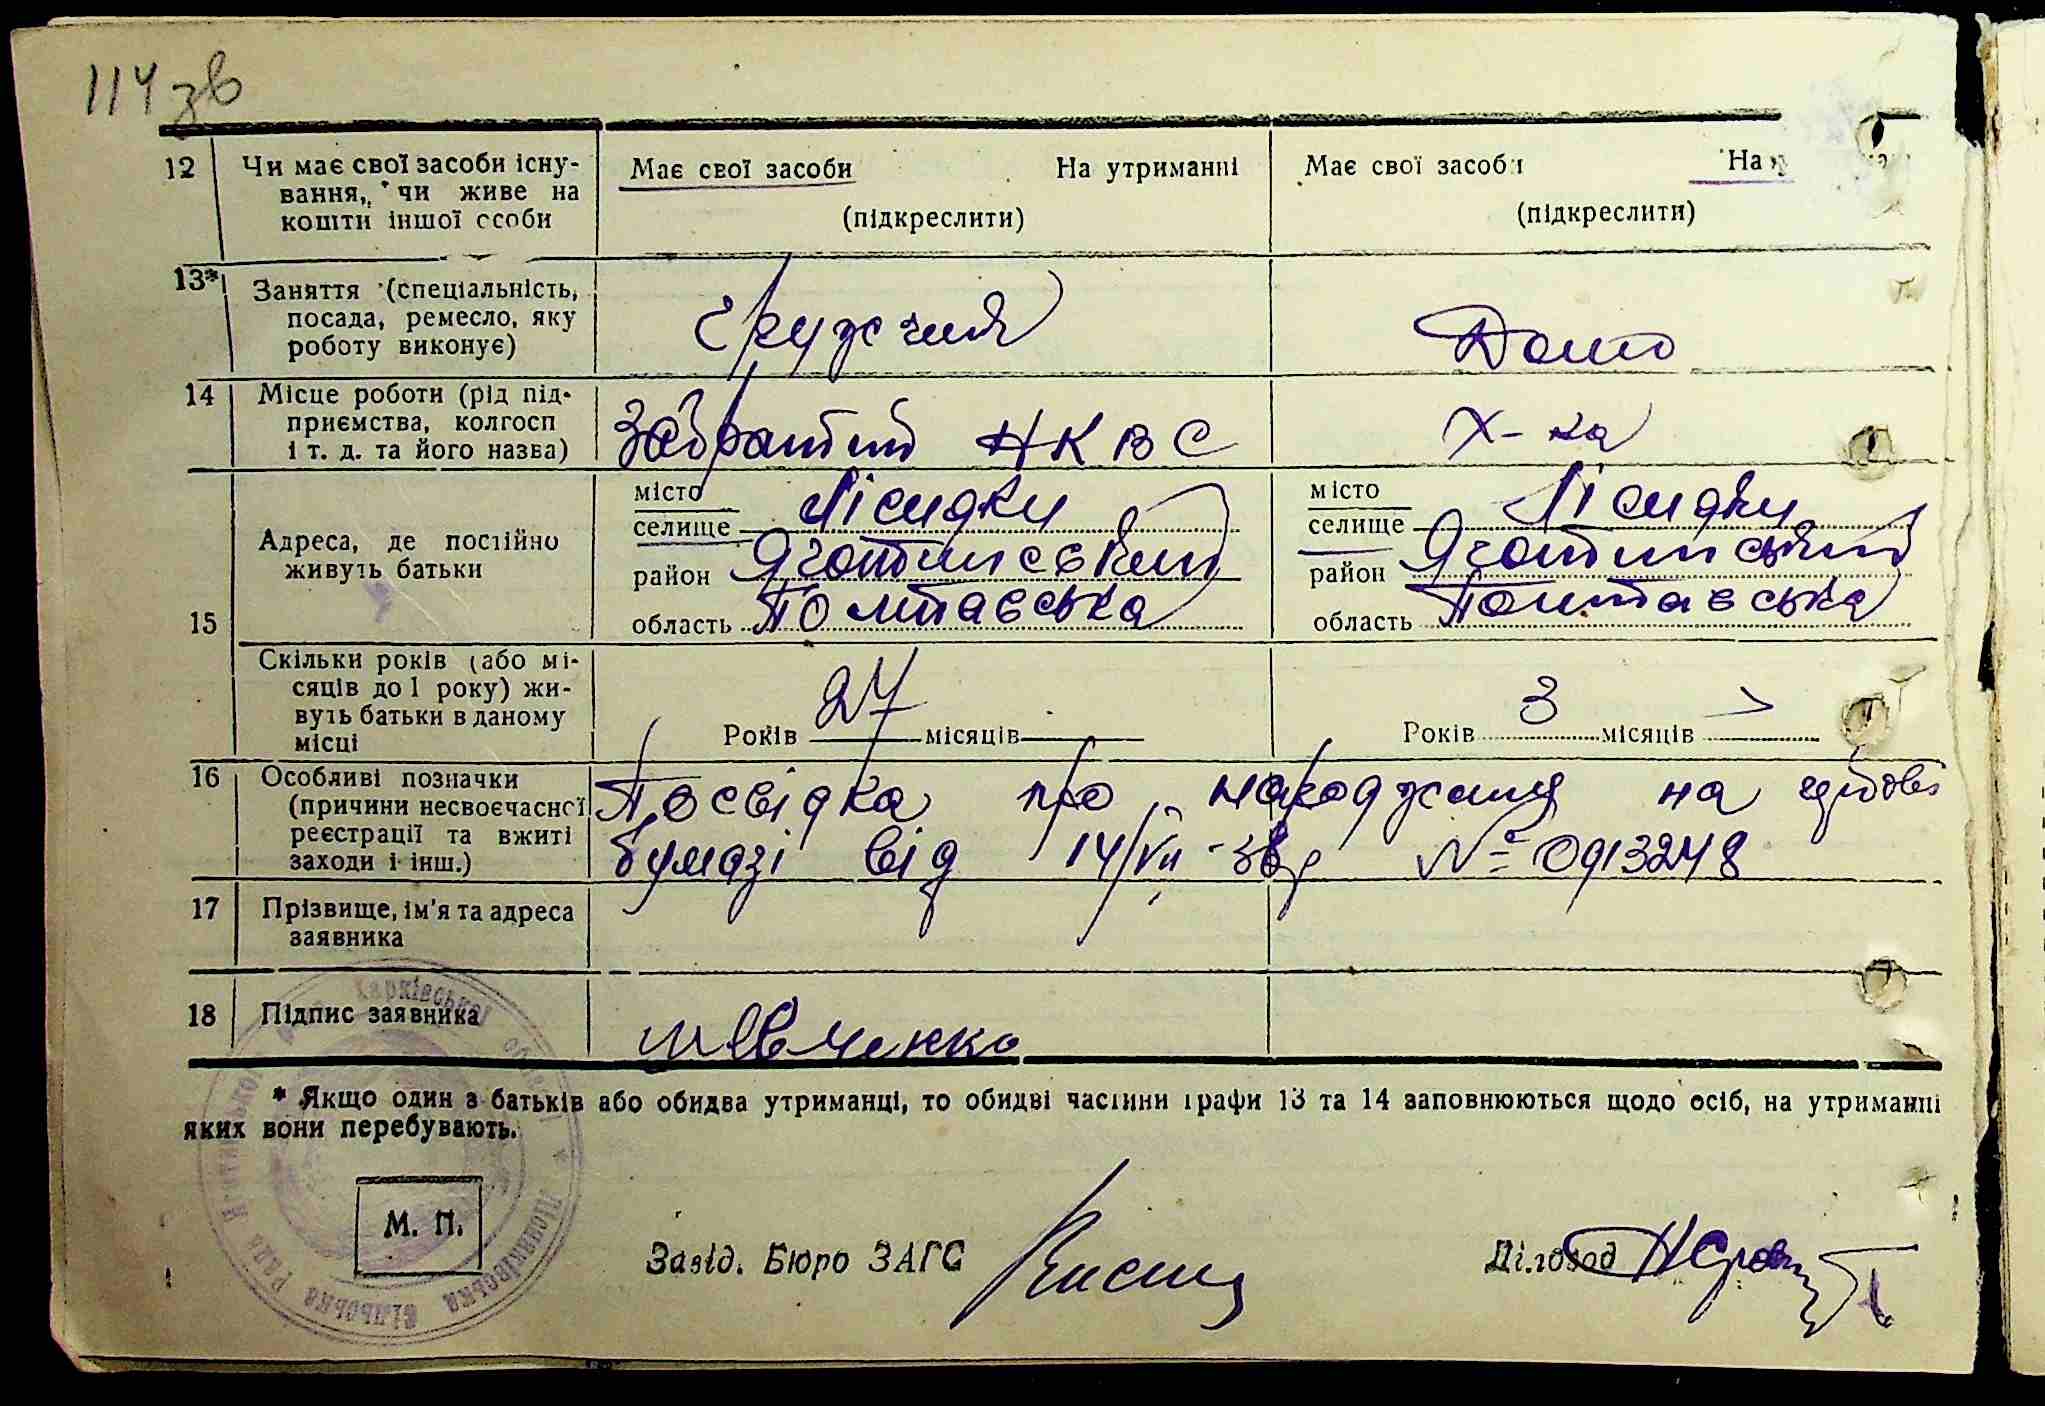 114 зв
12 Чи має свої засоби існу- Має свої засоби На утриманні Має свої засоби На у
вання, чи живе на
кошти іншої особи (підкреслити) (підкреслити)
13* Заняття (спеціальність, посада, ремесло, яку роботу виконує) Грузчик Домо
14 Місце роботи (рід під-
приємства, колгосп
і т. д. та його назва) Забратий НКВС Х-ка
місто місто
селище Лісняки селище Лісняки
Адреса, де постійно
живуть батьки
район Яготинський район Яготинський
15 область Полтавська область Полтавська
Скільки років (або мі-
сяців до 1 року) жи-
вуть батьки в даному
місці
Років 27 місяців Років 3 місяців
16 Особливі позначки
(причини несвоєчасної
реєстрації та вжиті
заходи і інш.)
Посвідка про народження на гербові
бумазі від 14/VII-38р № 0913248
17 Прізвище, ім'я та адреса
заявника
18 Підпис заявника Шевченко
* Якщо один з батьків або обидва утриманці, то обидві частини графи 13 та 14 заповнюються щодо осіб, на утриманні
яких вони перебувають.
М. П.
Завід. Бюро ЗАГС Діловод
Харківської області * Лісняківська сільська Рада Яготинсько